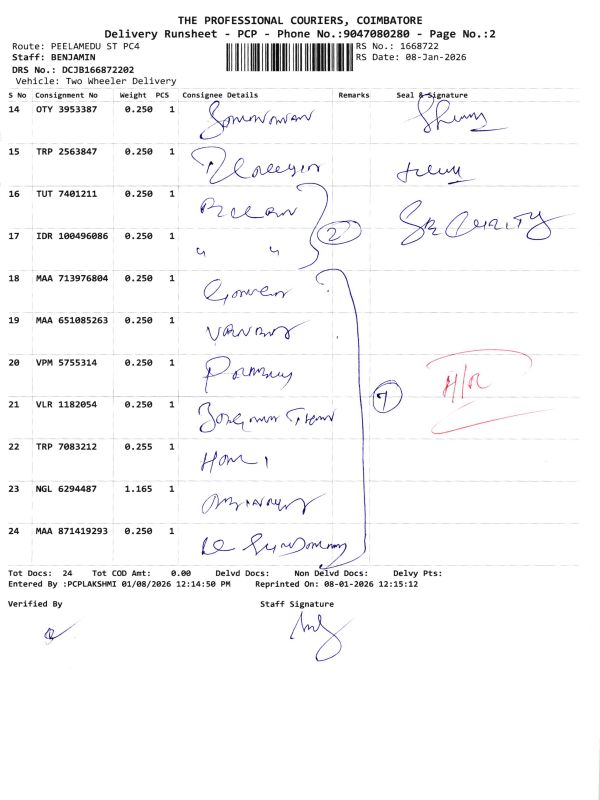 THE PROFESSIONAL COURIERS, COIMBATORE
Delivery Runsheet - PCP - Phone No.:9047080280 - Page No.:2
Route: PEELAMEDU ST PC4 RS No.: 1668722
Staff: BENJAMIN RS Date: 08-Jan-2026
DRS No.: DCJB166872202
Vehicle: Two Wheeler Delivery
S No Consignment No Weight PCS Consignee Details Remarks Seal & Signature
14 OTY 3953387 0.250 1
15 TRP 2563847 0.250 1
16 TUT 7401211 0.250 1
17 IDR 100496086 0.250 1 " " 2 SECURITY
18 MAA 713976804 0.250 1
19 MAA 651085263 0.250 1
20 VPM 5755314 0.250 1
21 VLR 1182054 0.250 1 7 H/R
22 TRP 7083212 0.255 1
23 NGL 6294487 1.165 1
24 MAA 871419293 0.250 1
Tot Docs: 24 Tot COD Amt: 0.00 Delvd Docs: Non Delvd Docs: Delvy Pts:
Entered By :PCPLAKSHMI 01/08/2026 12:14:50 PM Reprinted On: 08-01-2026 12:15:12
Verified By Staff Signature